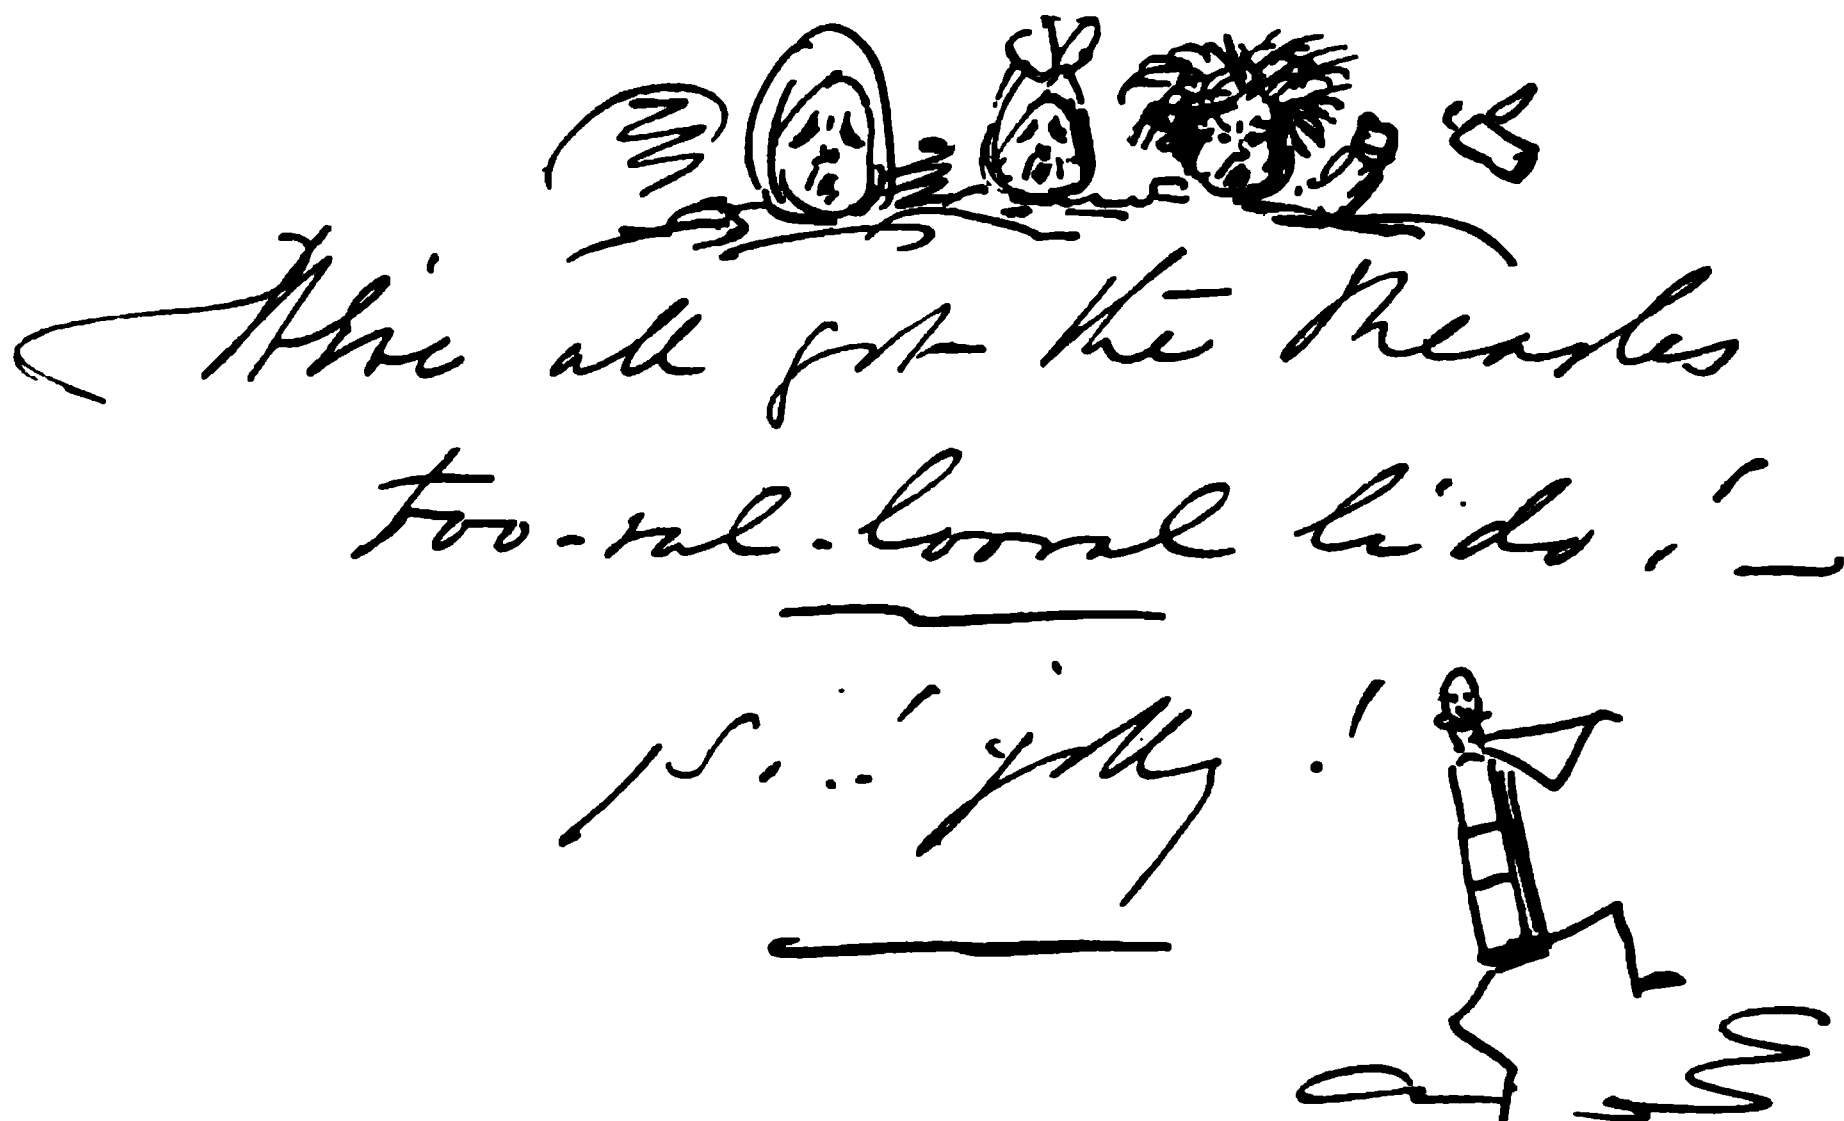 We've all got the Measles
too-ral-looral li do! —
jolly!